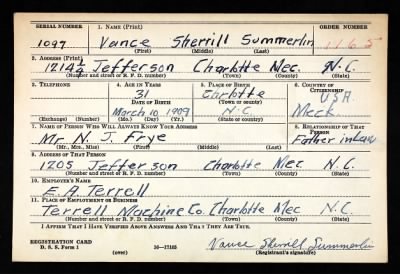 SERIAL NUMBER 1. NAME (Print) ORDER NUMBER
1097 Vance Sherrill Summerlin 1165
(First) (Middle) (Last)
2. ADDRESS (Print)
1214½ Jefferson Charlotte Mec. N.C.
(Number and street or R. F. D. number) (Town) (County) (State)
3. TELEPHONE 4. AGE IN YEARS 5. PLACE OF BIRTH 6. COUNTRY OF CITIZENSHIP
31 Carlotte
DATE OF BIRTH (Town or county) USA
March 10 1909 N.C. Meck.
(Exchange) (Number) (Mo.) (Day) (Yr.) (State or country)
7. NAME OF PERSON WHO WILL ALWAYS KNOW YOUR ADDRESS 8. RELATIONSHIP OF THAT PERSON
Mr N. J. Frye Father in law
(Mr., Mrs., Miss) (First) (Middle) (Last)
9. ADDRESS OF THAT PERSON
1205 Jefferson Charlotte Mec N.C.
(Number and street or R. F. D. number) (Town) (County) (State)
10. EMPLOYER'S NAME
E. A. Terrell
11. PLACE OF EMPLOYMENT OR BUSINESS
Terrell Machine Co. Charlotte Mec N.C.
(Number and street or R. F. D. number) (Town) (County) (State)
I AFFIRM THAT I HAVE VERIFIED ABOVE ANSWERS AND THAT THEY ARE TRUE.
REGISTRATION CARD
D. S. S. Form 1 16—17105 Vance Sherrill Summerlin
(over) (Registrant's signature)